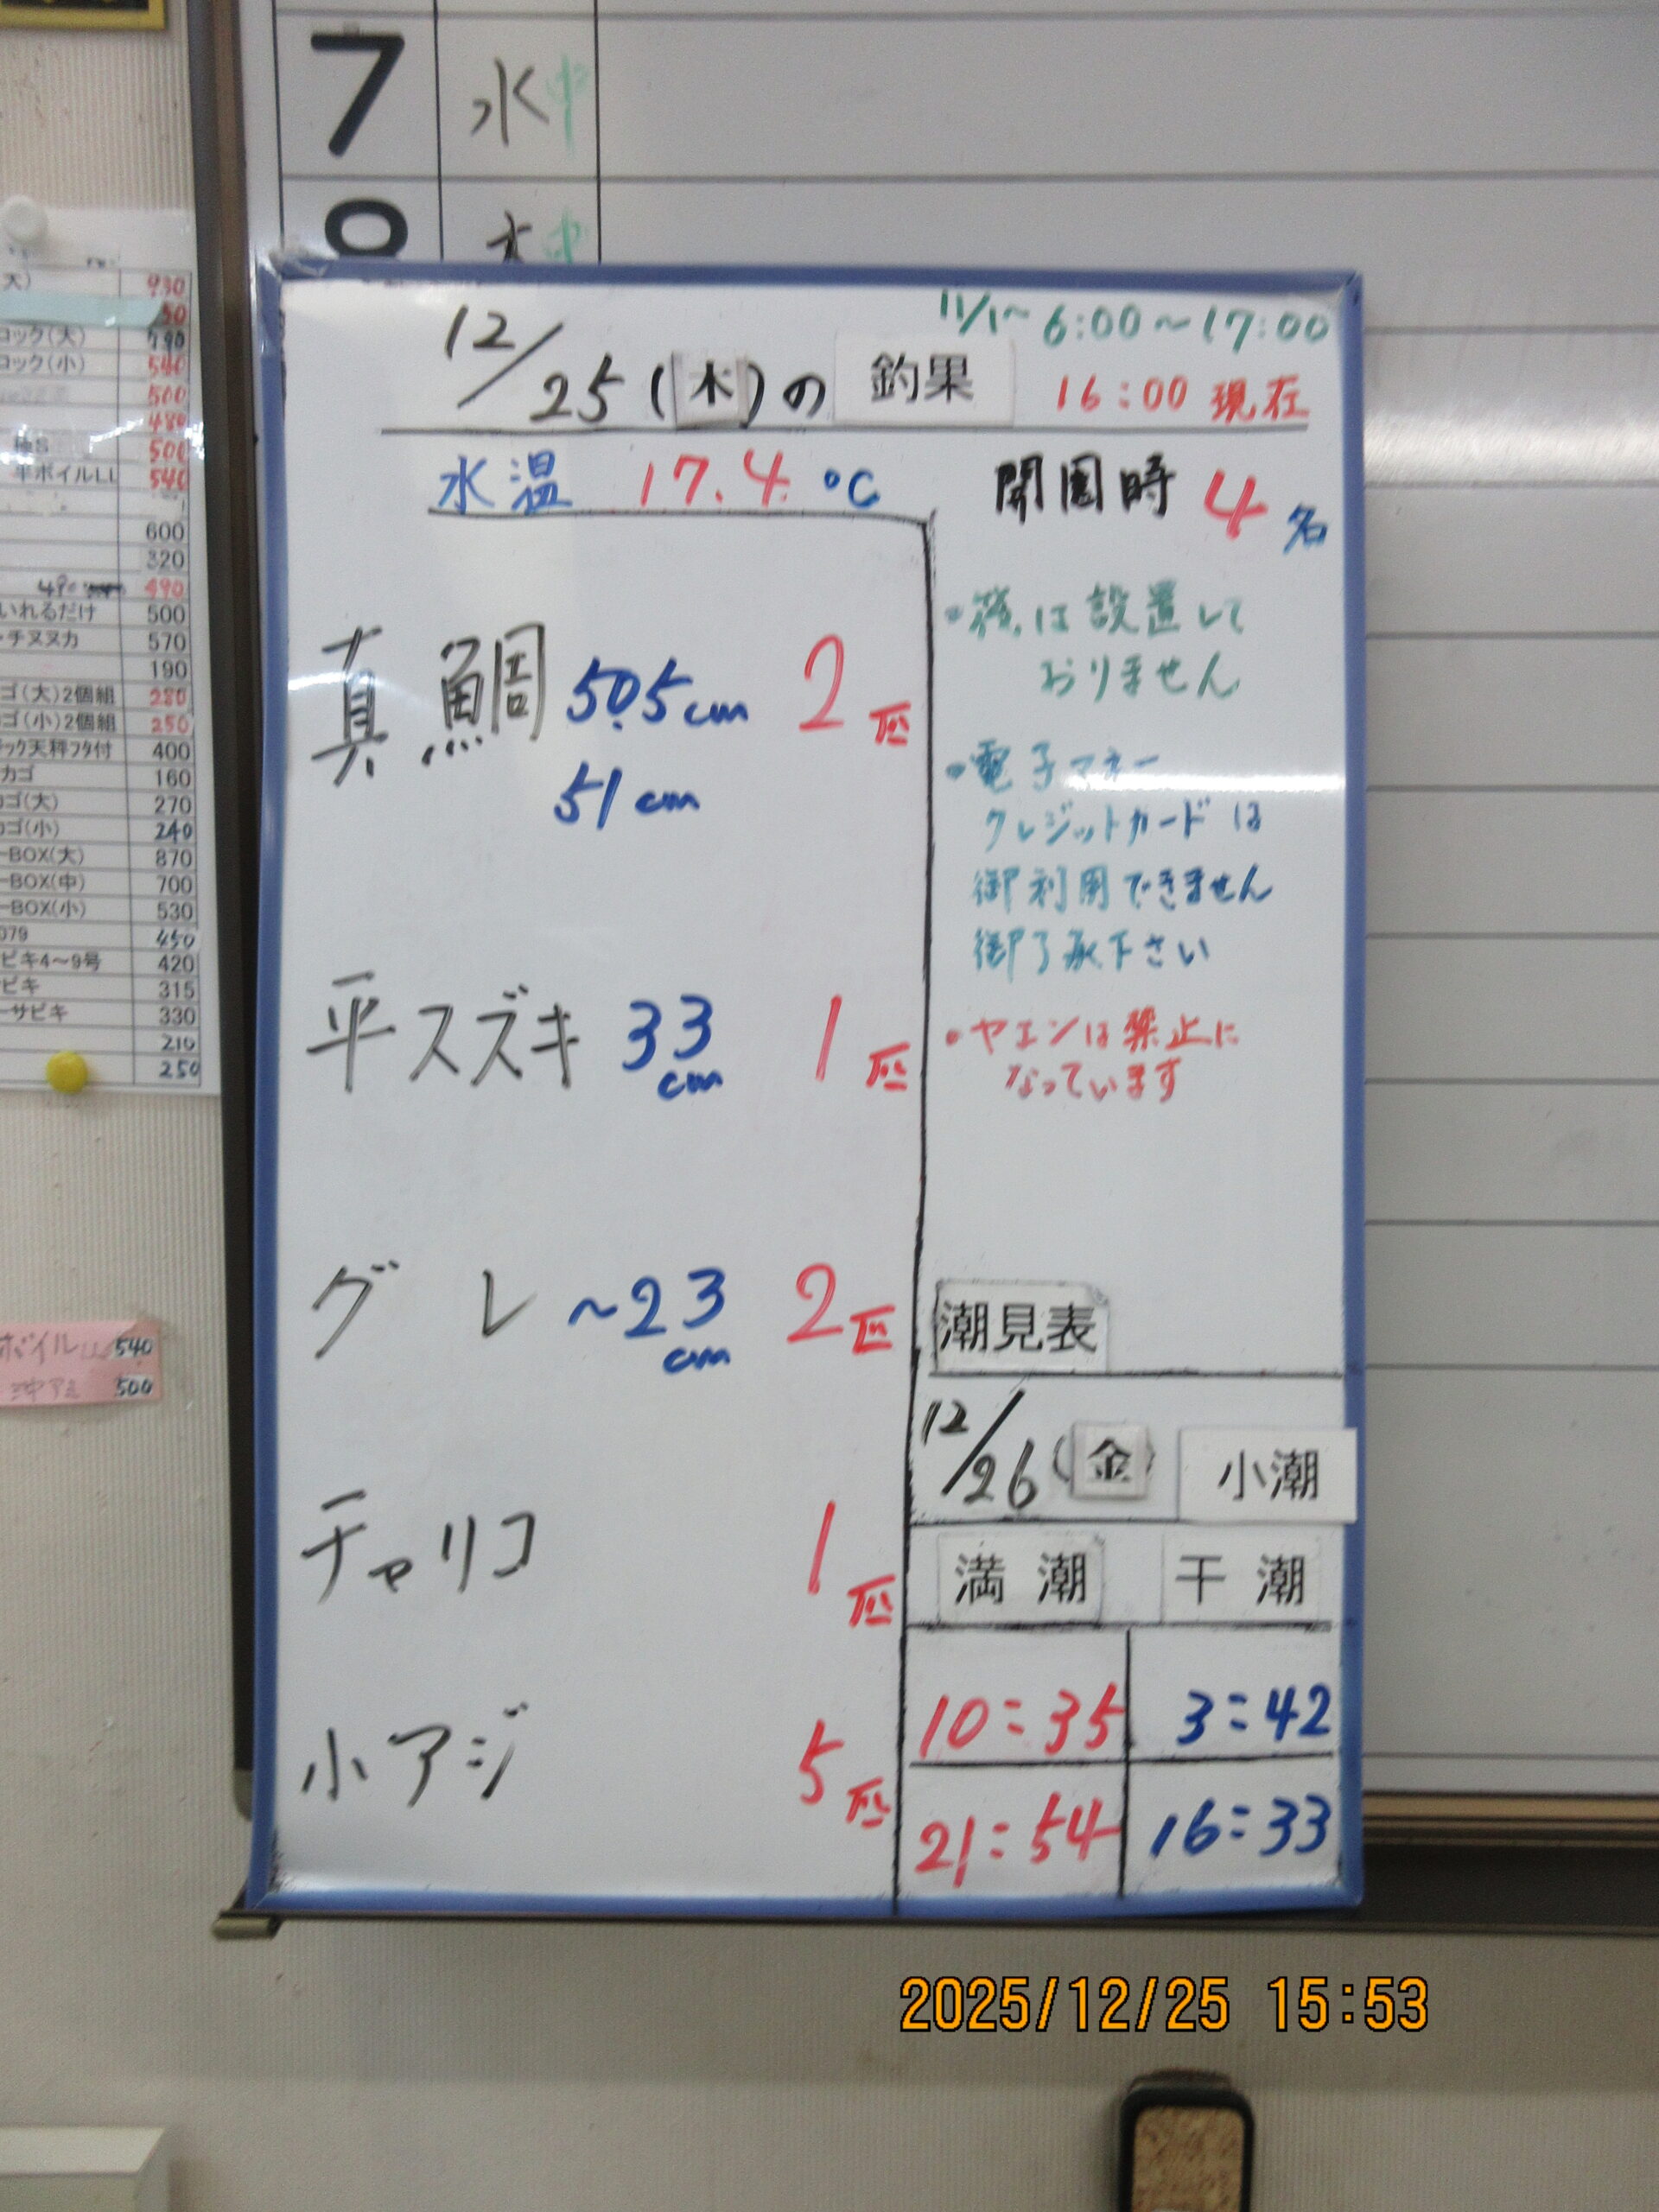 7 水 中
8 木 中
12/25(木)の 釣果
11/1~ 6:00~17:00
16:00 現在
水温 17.4 ℃
開園時 4名
真鯛 50.5cm 2匹
51cm
平スズキ 33cm 1匹
グレ ~23cm 2匹
チャリコ 1匹
小アジ 5匹
は設置して
おりません
・電子マネー
クレジットカードは
御利用できません
御了承下さい
・ヤエンは禁止に
なっています
潮見表
12/26(金) 小潮
満潮 干潮
10:35 3:42
21:54 16:33
大) 930
50
コック(大) 790
コック(小) 540
500
480
500
平ボイルLL 540
600
320
490 490
いれるだけ 500
・チヌヌカ 570
190
ゴ(大)2個組 280
ゴ(小)2個組 250
ック天秤フタ付 400
カゴ 160
ゴ(大) 270
ゴ(小) 240
ーBOX(大) 870
ーBOX(中) 700
ーBOX(小) 530
379 450
ビキ4~9号 420
ビキ 315
ーサビキ 330
210
250
ボイルLL 540
500
2025/12/25 15:53